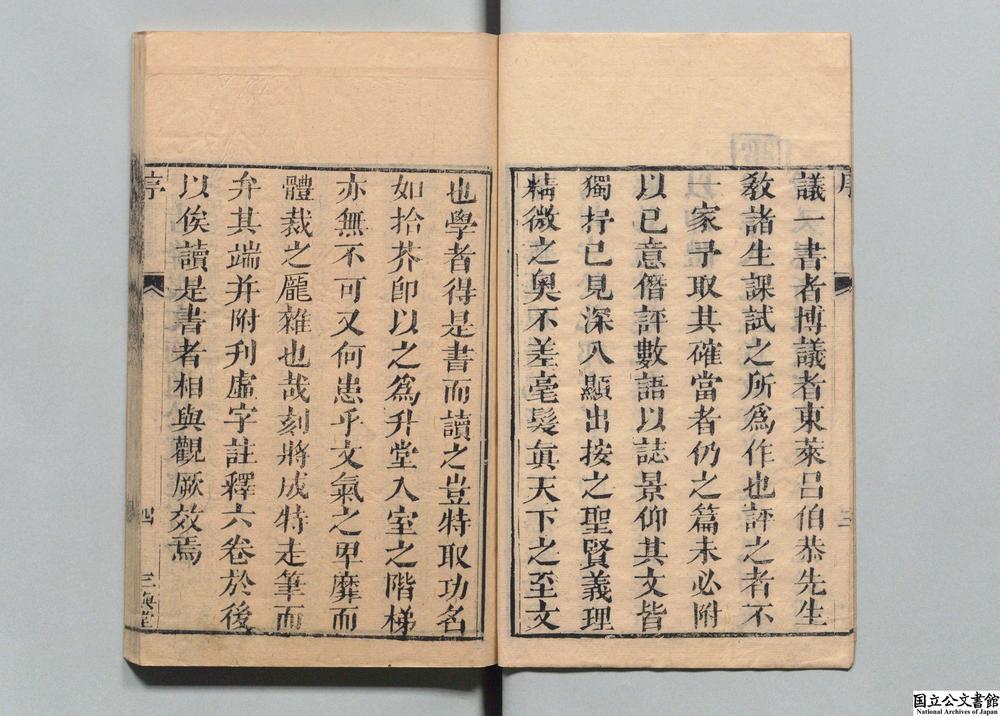 議一書者博議者東萊呂伯恭先生
敎諸生課試之所爲作也評之者不
一家予取其確當者仍之篇末必附
以已意僭評數語以誌景仰其文皆
獨抒已見深入顯出按之聖賢義理
精微之奧不差毫髮眞天下之至文
也學者得是書而讀之豈特取功名
如拾芥卽以之爲升堂入室之階梯
亦無不可又何患乎文氣之卑靡而
體裁之龐雜也哉刻將成特走筆而
弁其端并附刊虛字註釋六卷於後
以俟讀是書者相與觀厥效焉
序
四
国立公文書館
National Archives of Japan